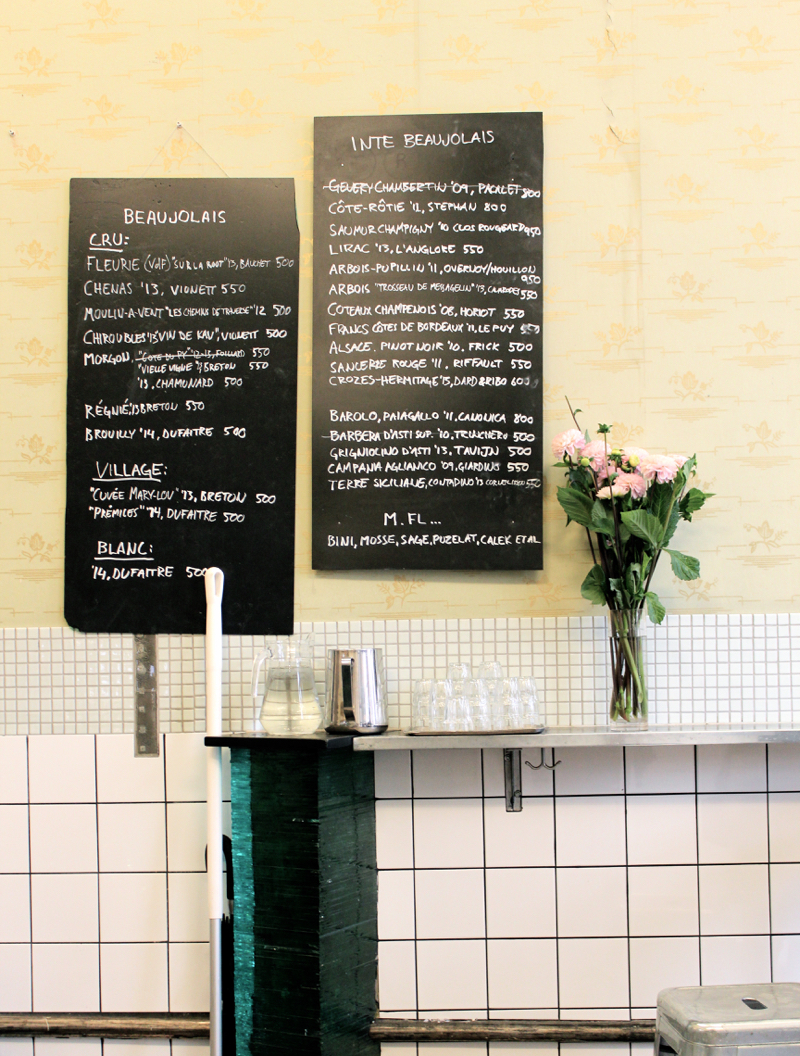 BEAUJOLAIS
CRU:
FLEURIE (VdF) "SUR LA '13, BAUCHET 500
CHENAS '13, VIONETT 550
MOULIN-A-VENT "LES CHEMINS DE TRAVERSE" '12 500
CHIROUBLES '13 "VIN DE KAV", VIONETT 500
MORGON, "COTE DU PY" '12-13, FOILLARD 550
"VIELLE VIGNE" BRETON 550
'13, CHAMONARD 500
RÉGNIÉ, '13 BRETON 550
BROUILLY '14, DUFAITRE 500
VILLAGE:
"CUVÉE MARY-LOU" '13, BRETON 500
"PRÉMICES" '14, DUFAITRE 500
BLANC:
'14, DUFAITRE 500
INTE BEAUJOLAIS
GEVERY CHAMBERTIN '09, PACALET 800
CÔTE-RÔTIE '12, STEPHAN 800
SAUMUR CHAMPIGNY '10 CLOS ROUGEARD 950
LIRAC '13, L'ANGLORE 550
ARBOIS-PUPILLIN '11, OVERNOY/HOUILLON
950
ARBOIS "TROSSEAU DE '13, 550
COTEAUX CHAMPENOIS '08, HORIOT 550
FRANCS CÔTES DE BORDEAUX '11, LE PUY 550
ALSACE. PINOT NOIR '10. FRICK 500
SANCERRE ROUGE '11, RIFFAULT 550
CROZES-HERMITAGE '13, DARD & RIBO 600
BAROLO, PAIAGALLO '11, CANONICA 800
BARBERA D'ASTI SUP. '10, TRINCHERO 500
GRIGNIOLINO D'ASTI '13, TAVIJN 500
CAMPANIA AGLIANCO '09, GIARDINO 550
TERRE SICILIANE, CONTADINO '13 550
M.FL...
BINI, MOSSE, SAGE, PUZELAT, CALEK ETAL